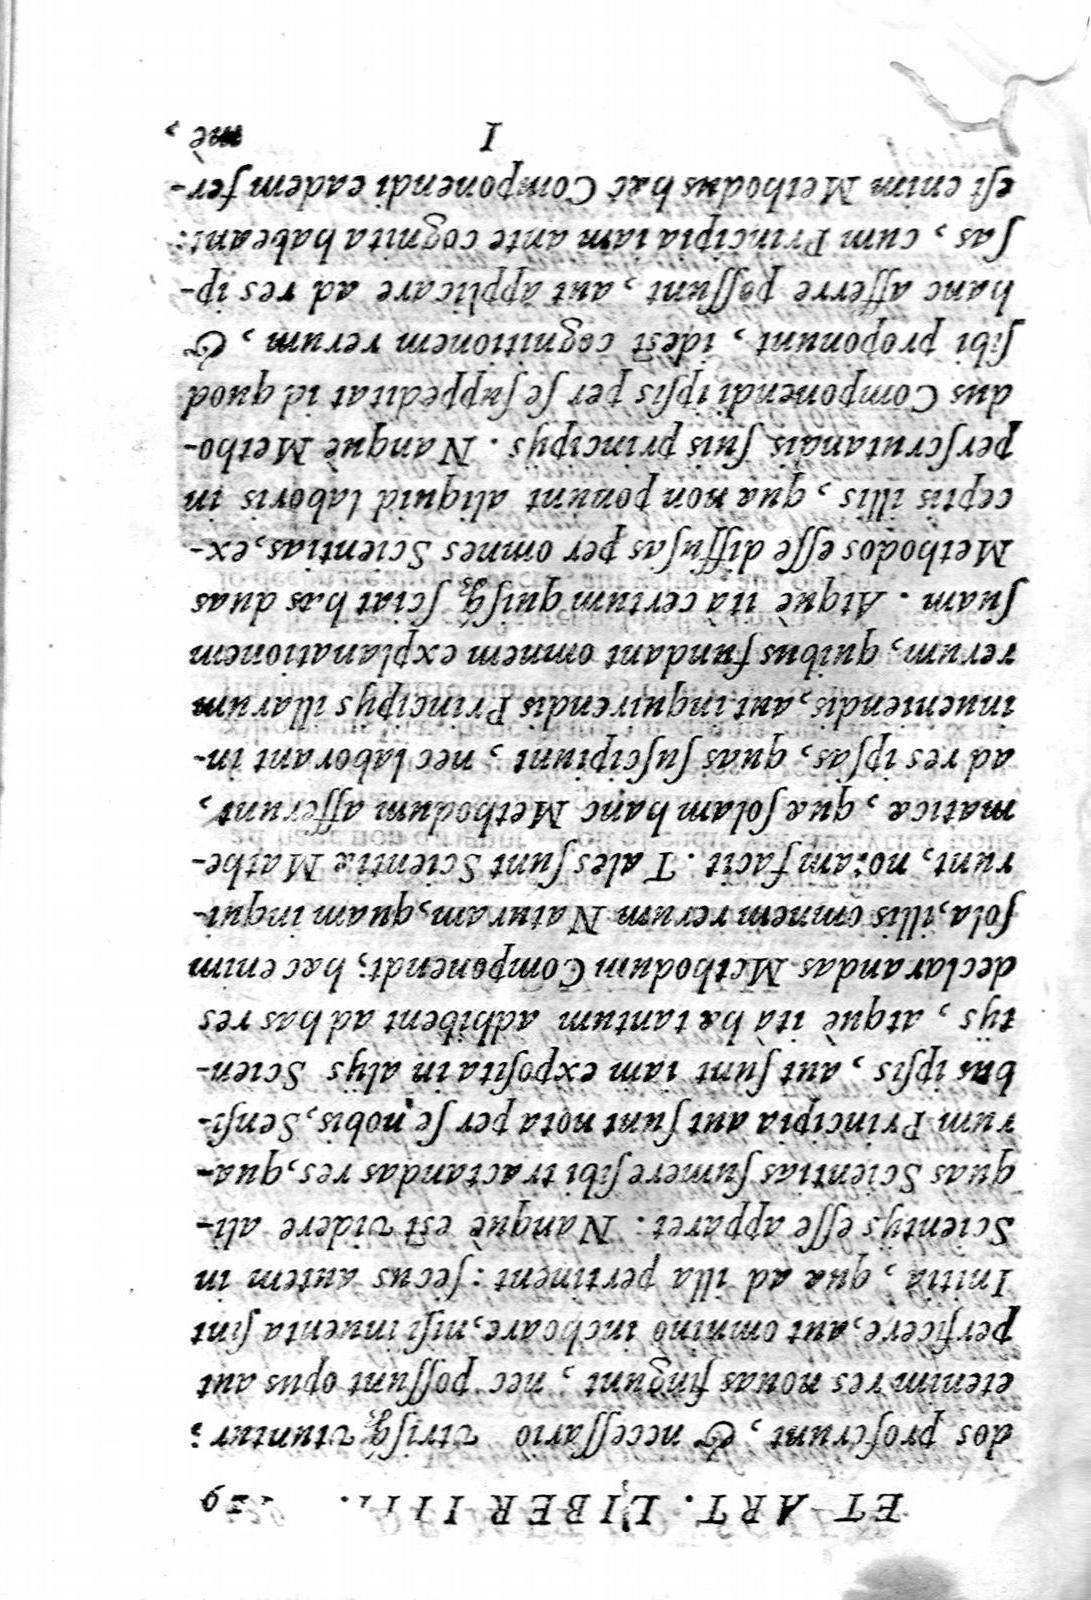 ET ART. LIBER IIII. 129
dos proferunt, & necessario vtrisq; vtuntur;
etenim res nouas fingunt, nec possunt opus aut
perficere, aut omninò inchoare, nisi inuenta sint
Initia, quæ ad illa pertinent: secus autem in
Scientijs esse apparet: Nanquè est videre ali-
quas Scientias sumere sibi tractandas res, qua-
rum Principia aut sunt nota per se nobis, Sensi-
bus ipsis, aut sunt iam exposita in alijs Scien-
tijs, atquè ità hæ tantum adhibent ad has res
declarandas Methodum Componendi; hæc enim
sola, illis omnem rerum Naturam, quam inqui-
runt, notam facit. Tales sunt Scientiæ Mathe-
maticæ, quæ solam hanc Methodum afferunt,
ad res ipsas, quas suscipiunt, nec laborant in-
inueniendis, aut inquirendis Principijs illarum
rerum, quibus fundant omnem explanationem
suam. Atquè ità certum quisq; sciat has duas
Methodos esse diffusas per omnes Scientias, ex-
ceptis illis, quæ non ponunt aliquid laboris in
perscrutandis suis principijs. Nanquè Metho-
dus Componendi ipsis per se suppeditat id quod
sibi proponunt, idest cognitionem rerum, &
hanc afferre possunt, aut applicare ad res ip-
sas, cum Principia iam ante cognita habeant:
est enim Methodus hæc Componendi eadem fer-
I mè,